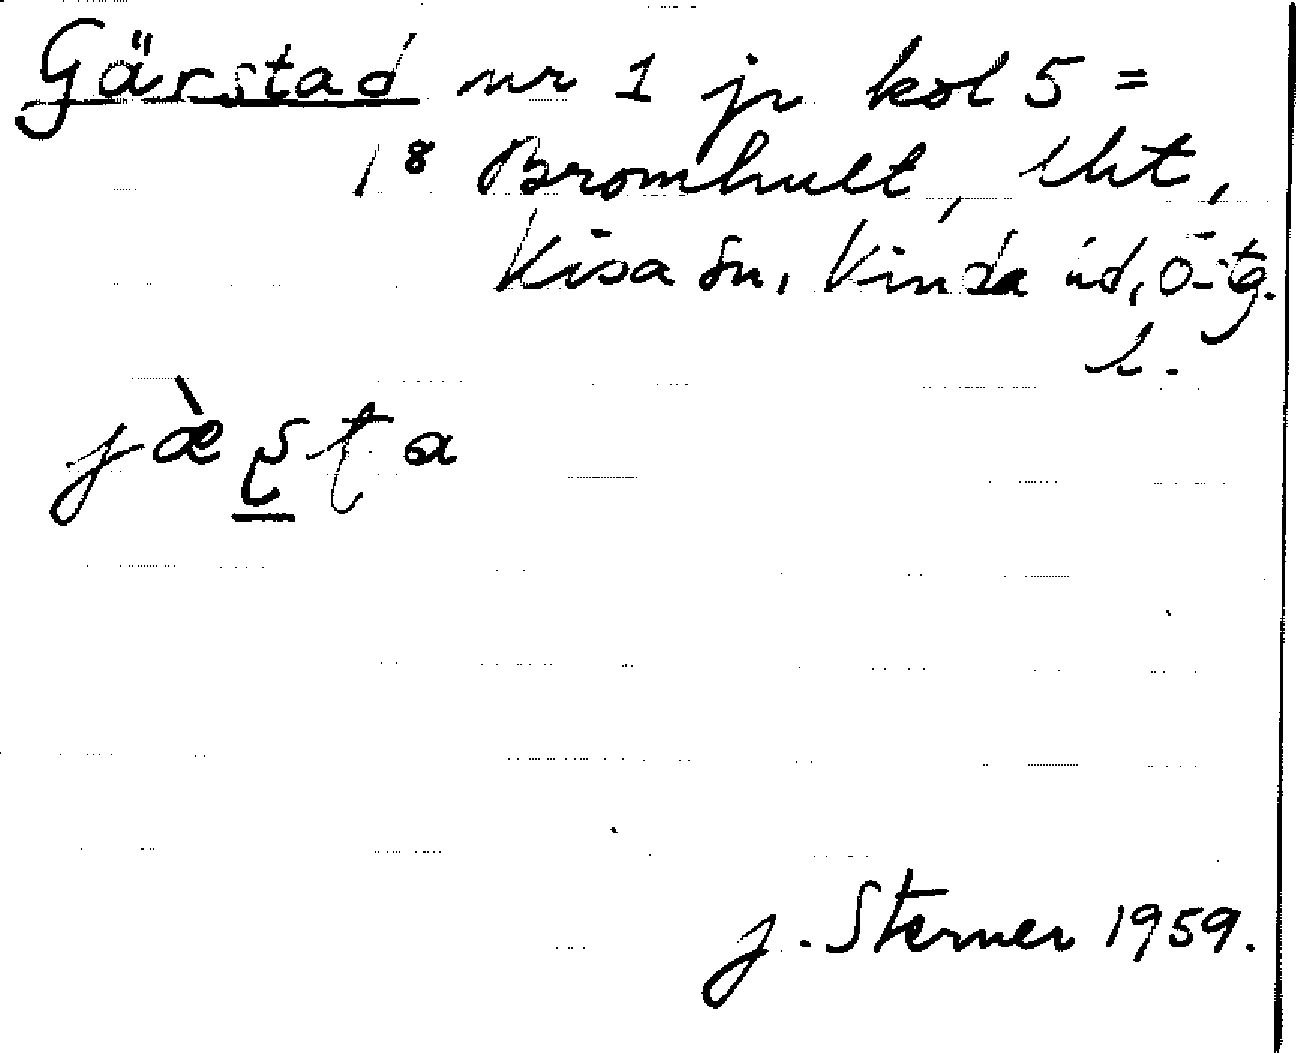 Gärstad nr 1 jr kol 5 =
1⁸ Bromhult, lht,
Kisa sn, Kinda hd, Ö-tg.
l.
jæ̀ʂʈa
J. Sterner 1959.